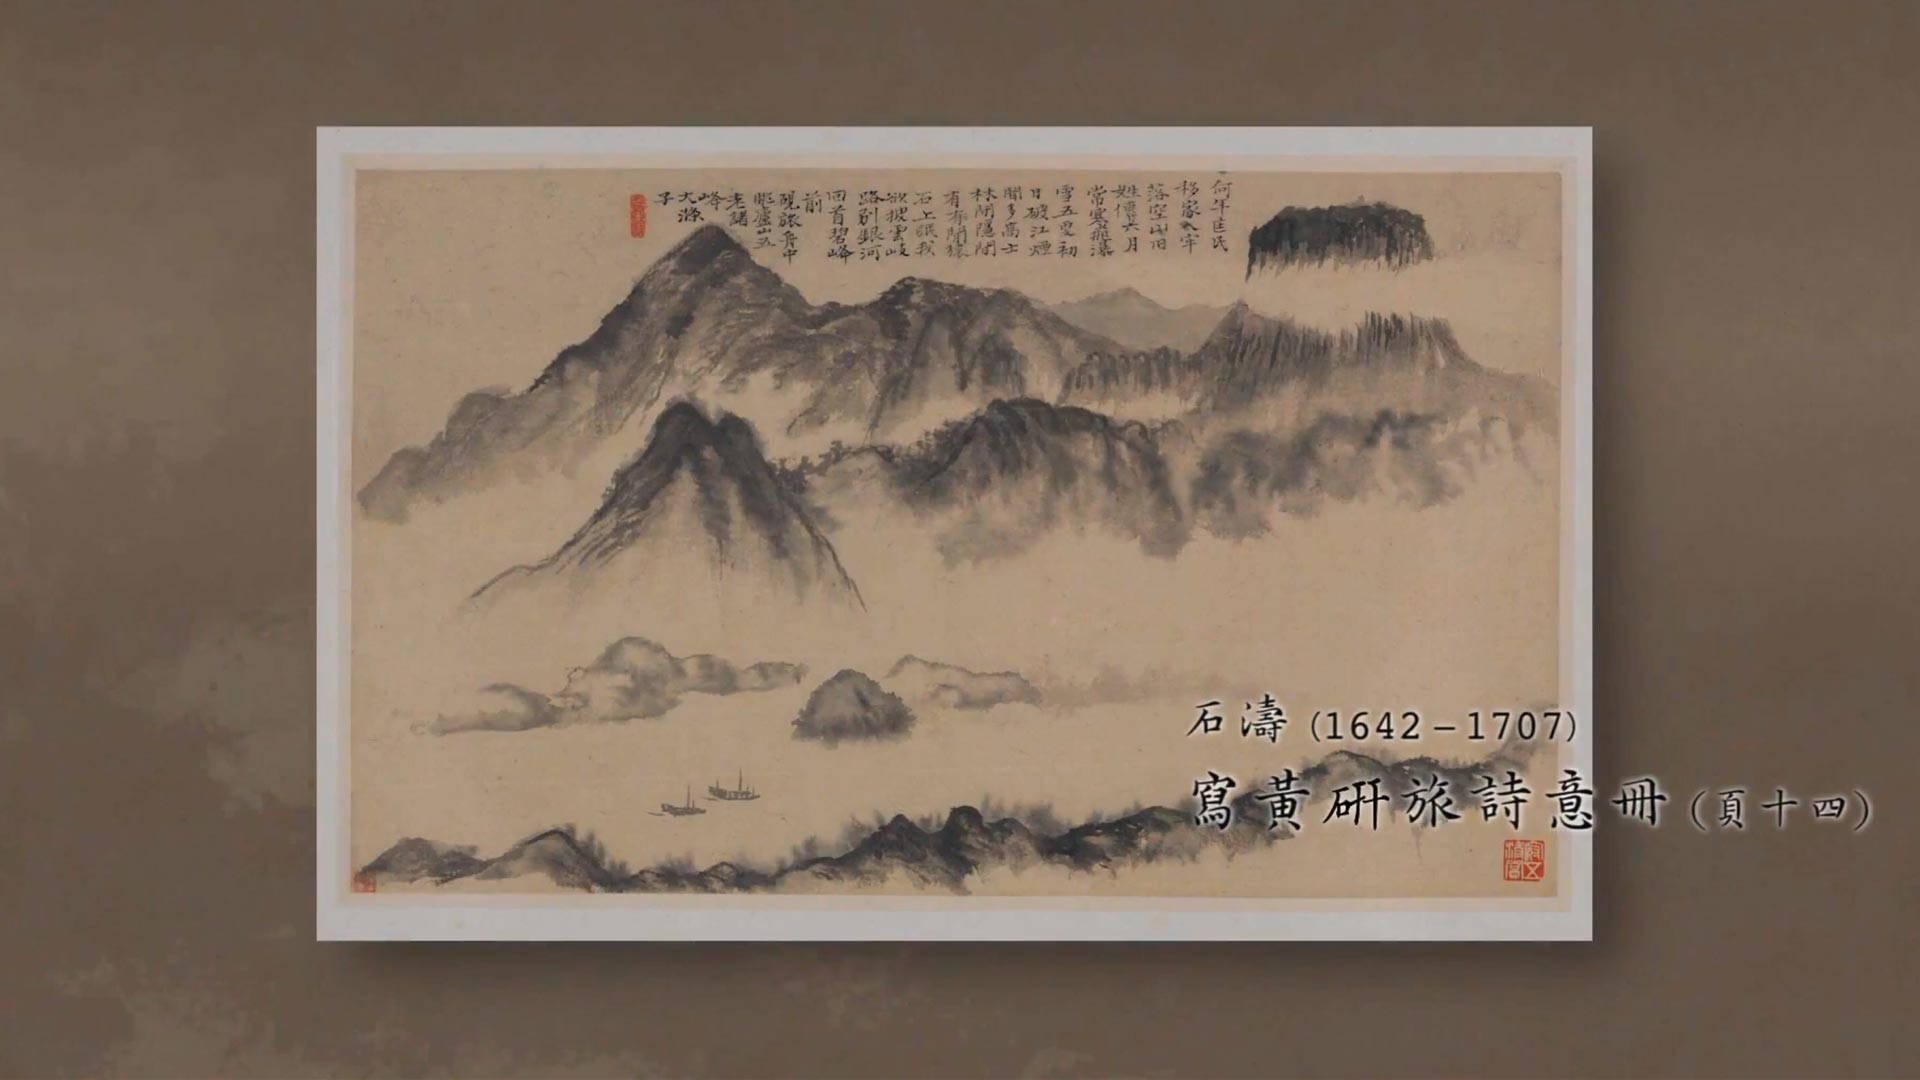 何年匡氏
移家入牢
落空山旧
姓傳六月
常寒飛瀑
雪五更初
日破江煙
聞多高士
林閒隱閒
有
石上眠我
欲披雲岐
路別銀河
回首碧峰
前
硯旅舟中
眺廬山五
老諸
峰
大滌
子
石濤 (1642–1707)
寫黃硏旅詩意冊 (頁十四)